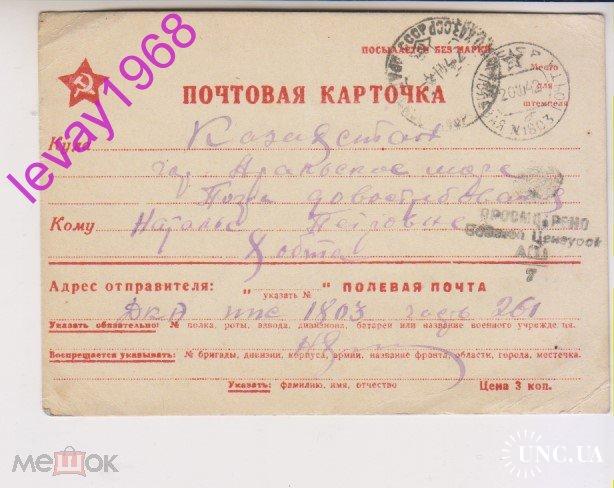 ПОСЫЛАЕТСЯ БЕЗ МАРКИ
Место
для
штемпеля
ПОЧТОВАЯ КАРТОЧКА
20 42
N1803
Куда Казахстан
гор. Аральское море
до востребования
Кому Наталье Петровне
ПРОСМОТРЕНО
Военной Цензурой
7
Адрес отправителя: " " ПОЛЕВАЯ ПОЧТА
указать №
ДКА ппс 1803 часть 261
Указать обязательно: № полка, роты, взвода, дивизиона, батареи или название военного учреждения.
Воспрещается указывать: № бригады, дивизии, корпуса, армии, название фронта, области, города, местечка.
Указать: фамилию, имя, отчество
Цена 3 коп.
levay1968
мешок
UNC.UA